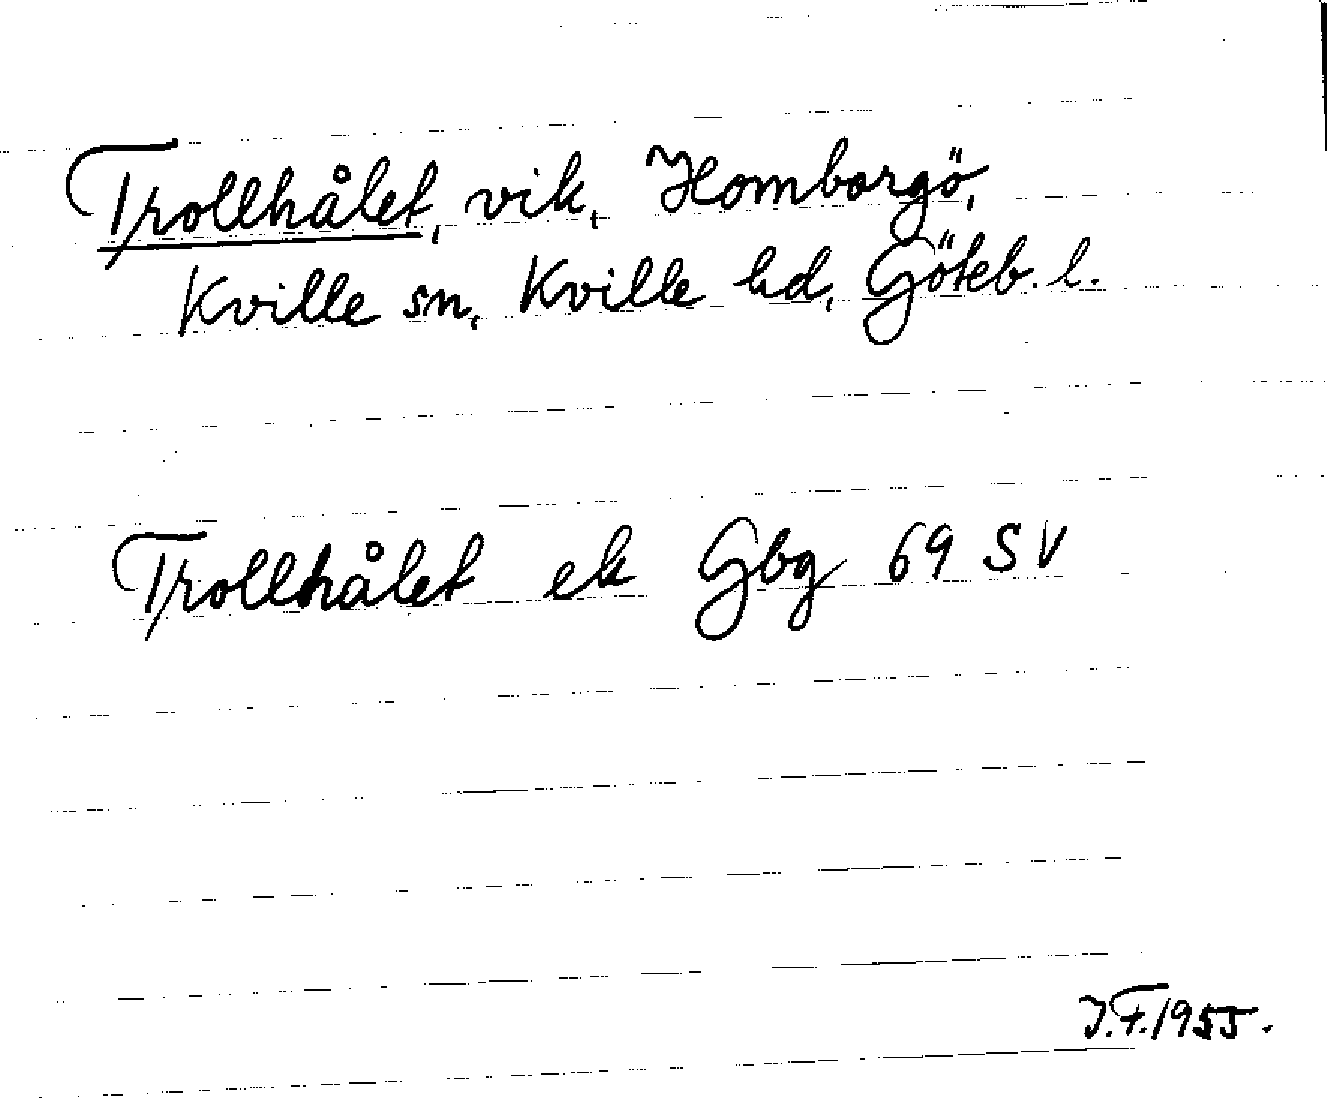 Trollhålet, vik, Homborgö,
Kville sn, Kville hd, Göteb. l.
Trollhålet ek Gbg 69 SV
J.F. 1955.